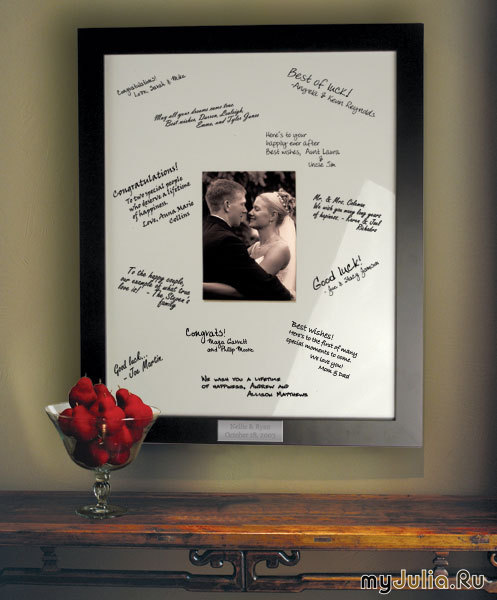 Congratulations!
Love, Sarah & Mike
Best of luck!
-Angela & Kevin Reynolds
May all your dreams come true.
Best wishes, Darren, Leleigh,
Emma, and Tyler James
Here's to your
happily ever after
Best wishes, Aunt Laura
&
Uncle Jim
Congratulations!
To two special people
who deserve a lifetime
of happiness.
Love, Anna Marie
Collins
Mr. & Mrs. Coleman
We wish you many long years
of happiness. - Karen & Joel
To the happy couple,
our example of what true
love is! - The
family
Good luck!
- Jim & Stacy
Congrats!
- Maya Garrett
and Philip Moore
Best wishes!
Here's to the first of many
special moments to come.
We love you!
Mom & Dad
Good luck...
- Joe Martin
We wish you a lifetime
of happiness, Andrew and
Allison Matthews
Nellie & Ryan
October 18, 2003
myJulia.Ru